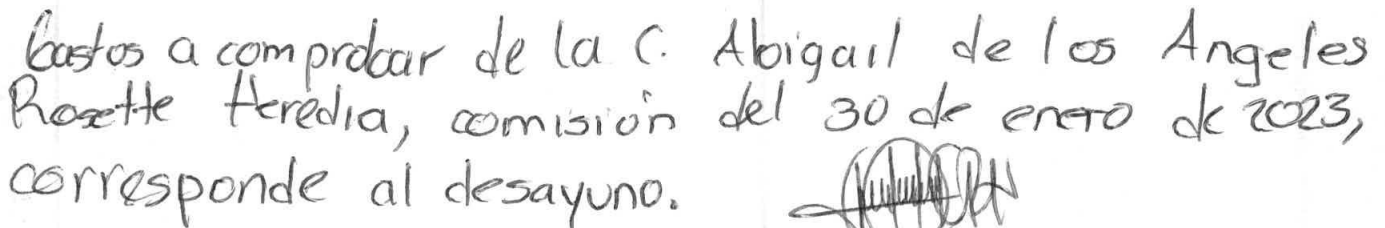 Gastos a comprobar de la C. Abigail de los Angeles
Rosette Heredia, comisión del 30 de enero de 2023,
corresponde al desayuno.